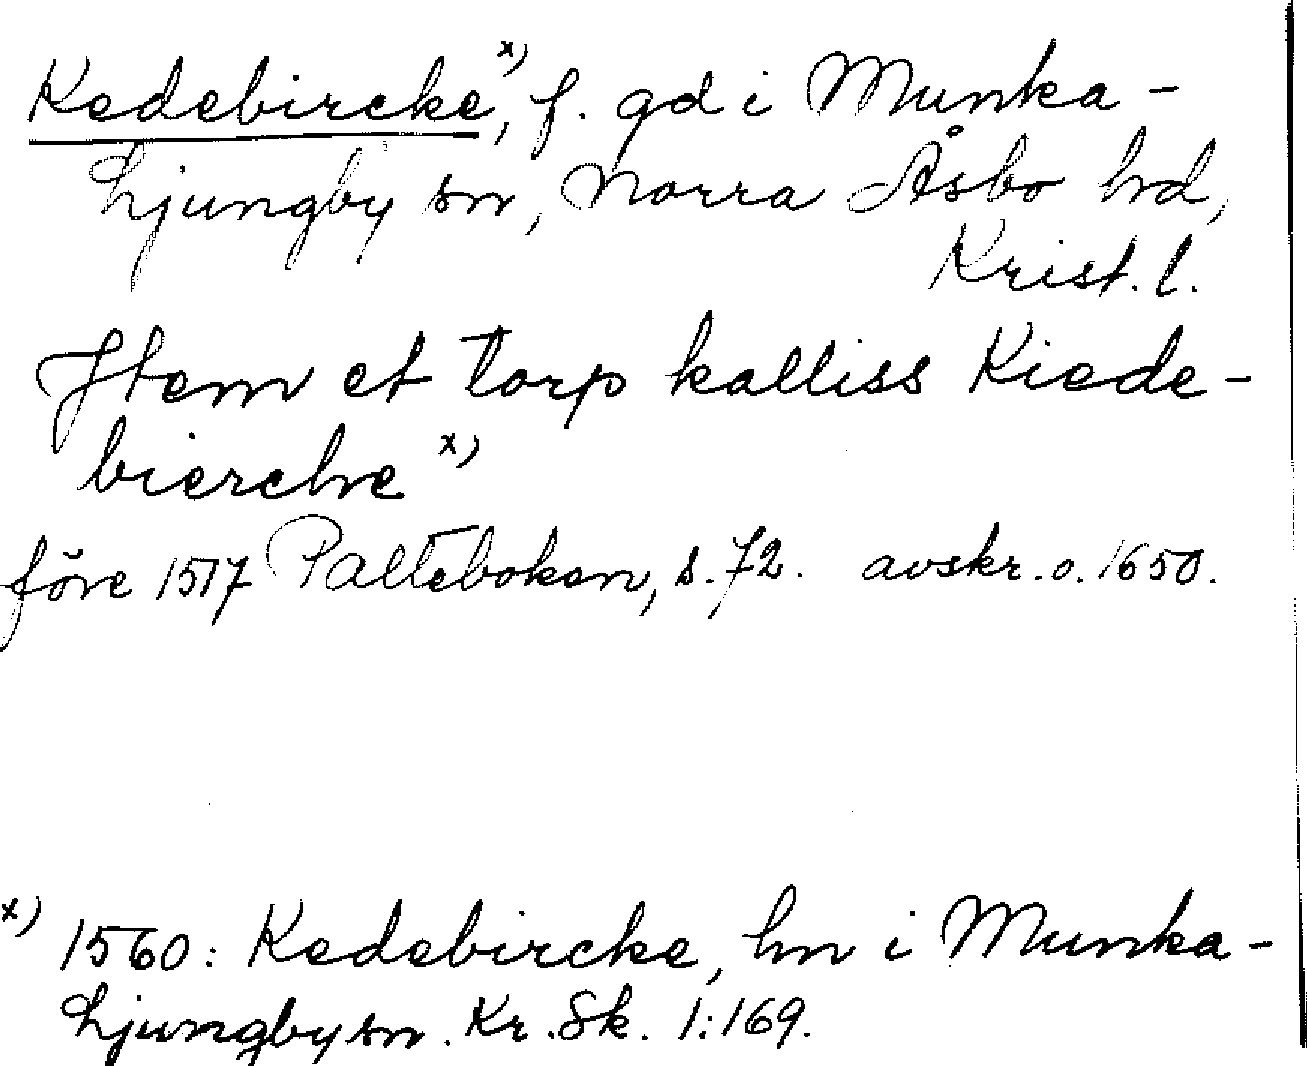 Kedebircke x), f. gd i Munka-
Ljungby sn, Norra Åsbo hd,
Krist. l.
Item et torp kalliss Kiede-
bierche x)
före 1517 Palteboken, s. 72. avskr. o. 1650.
x) 1560: Kedebircke, hn i Munka-
Ljungby sn. Kr. Sk. 1:169.